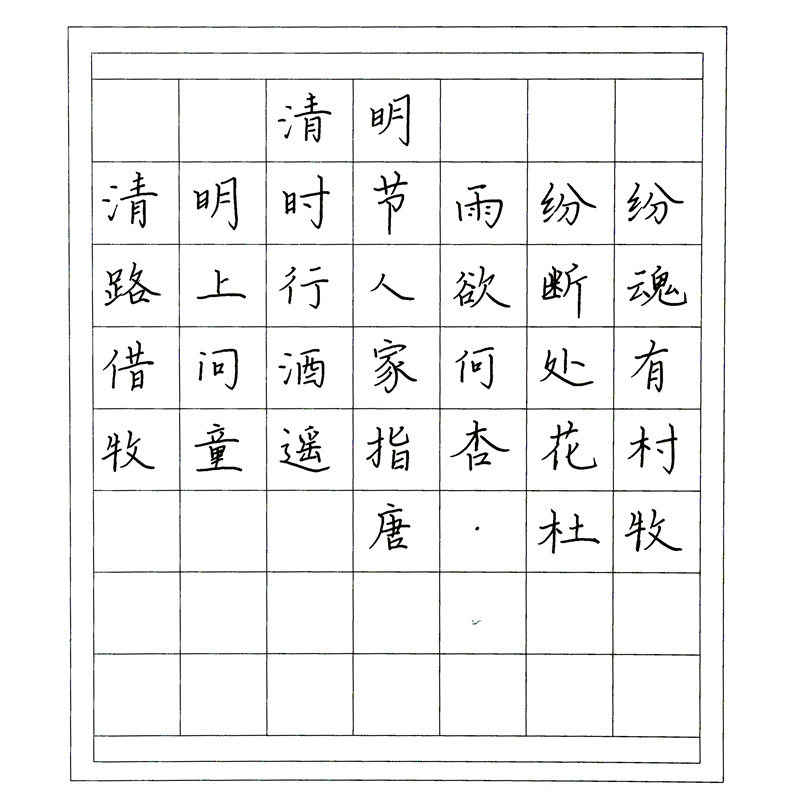 清明
清明时节雨纷纷
路上行人欲断魂
借问酒家何处有
牧童遥指杏花村
唐·杜牧